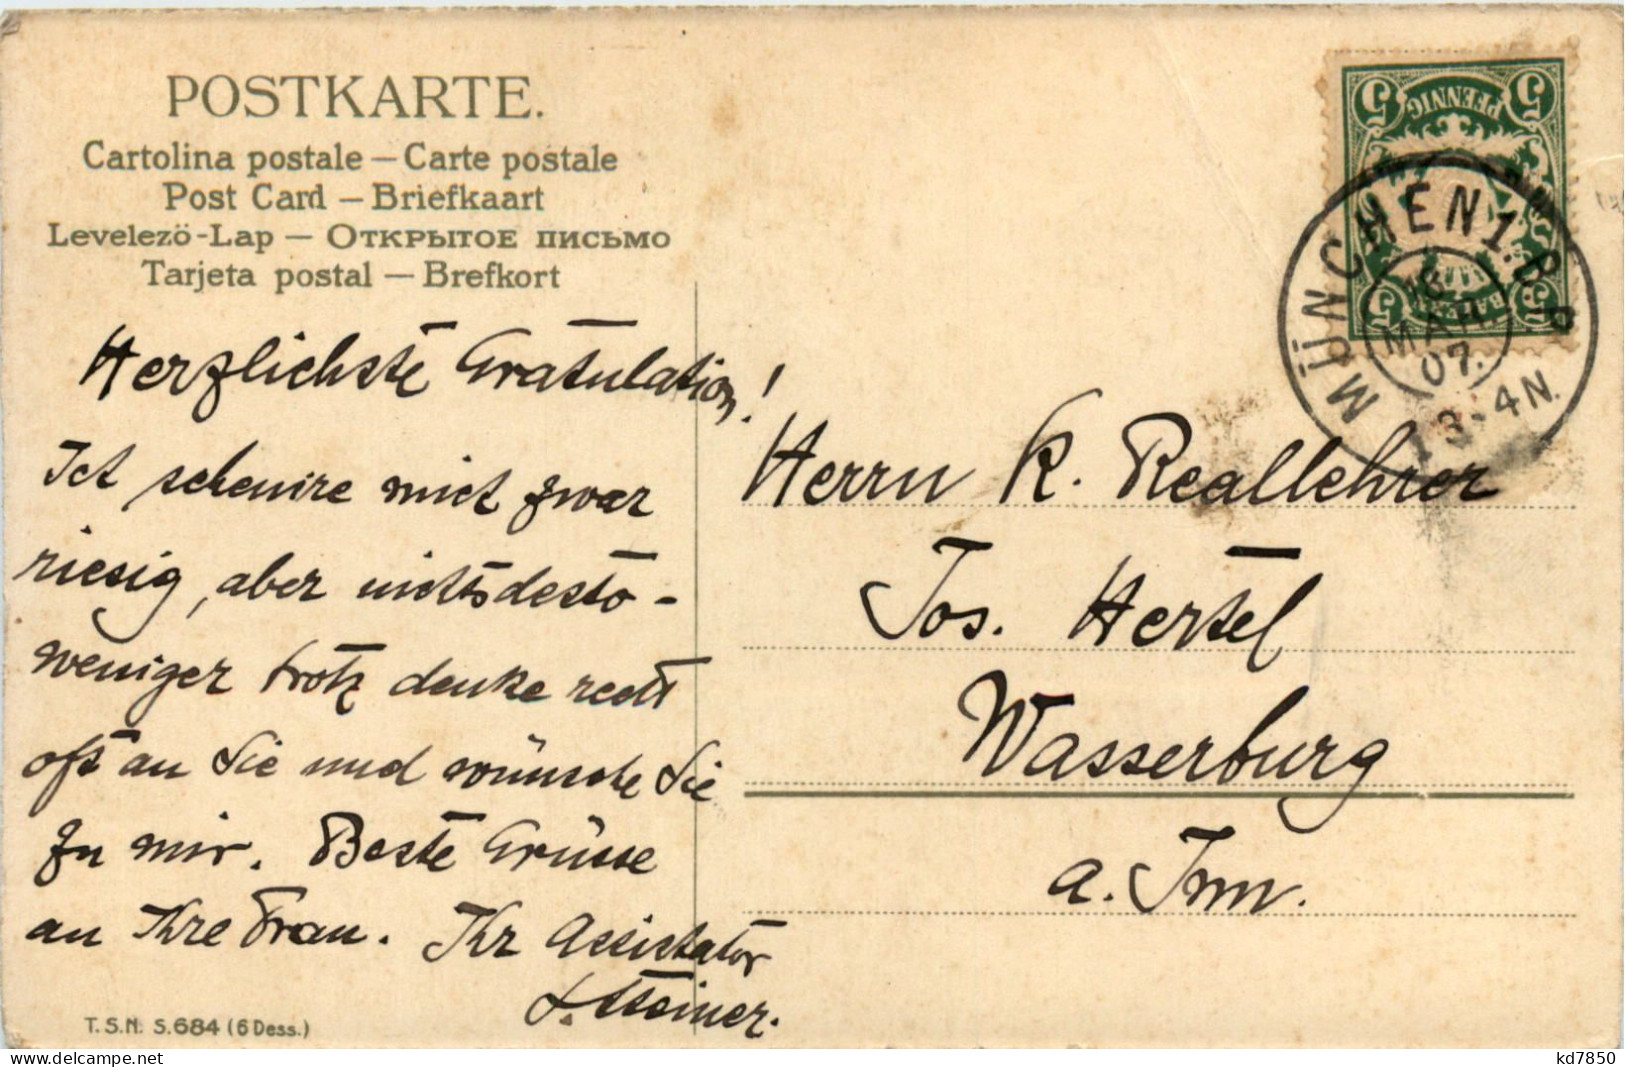 POSTKARTE.
Cartolina postale — Carte postale
Post Card — Briefkaart
Levelezö-Lap — Открытое письмо
Tarjeta postal — Brefkort
Herzlichste Gratulation!
Ich schenire mich zwar
riesig, aber nichtsdesto-
weniger trotz denke recht
oft an Sie und wünsche Sie
zu mir. Beste Grüsse
an Ihre Frau. Ihr Assistator
Steiner.
T.S.N. S.684 (6 Dess.)
5 PFENNIG 5
5 5
MÜNCHEN 1. B.P.
18.
MAR
07.
3-4 N.
Herrn K. Reallehrer
Jos. Hertel
Wasserburg
a. Inn.
kd7850